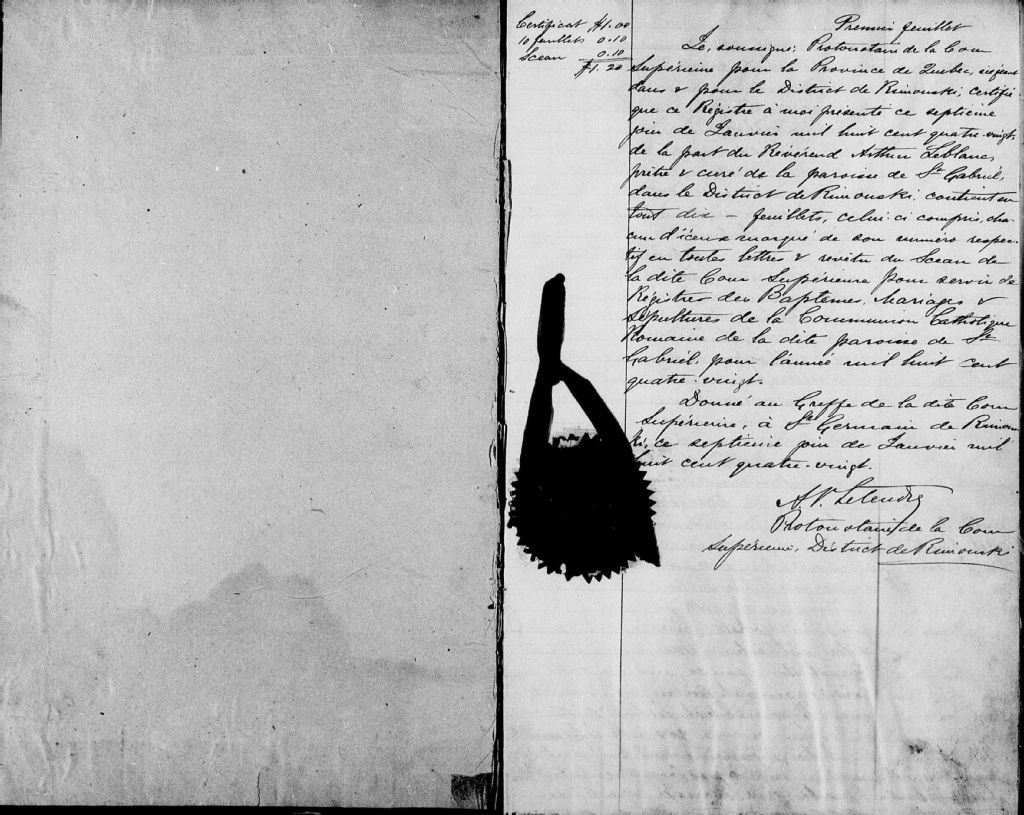 Certificat $1.00
10 feuillets 0.10
Sceau 0.10
$1.20
Premier feuillet
Je, soussigné, Protonotaire de la Cour
Supérieure pour la Province de Québec, siégeant
dans & pour le District de Rimouski, certifie
que ce Régistre à moi présenté ce septième
join de Janvier mil huit cent quatre-vingt
de la part du Révérend Arthur Leblanc,
prêtre & curé de la paroisse de St Gabriel,
dans le District de Rimouski, contient en
tout dix — feuillets, celui-ci compris, cha-
cun d'iceux marqué de son numéro respec-
tif en toutes lettres & revêtu du Sceau de
la dite Cour Supérieure pour servir de
Régistres des Baptêmes, Mariages &
Sépultures de la Communion Catholique
Romaine de la dite paroisse de St
Gabriel, pour l'année mil huit cent
quatre-vingt.
Donné au Greffe de la dite Cour
Supérieure, à St Germain de Rimous-
ki, ce septième join de Janvier mil
huit cent quatre-vingt.
A. P. Letendre
Protonotaire de la Cour
Supérieure, District de Rimouski